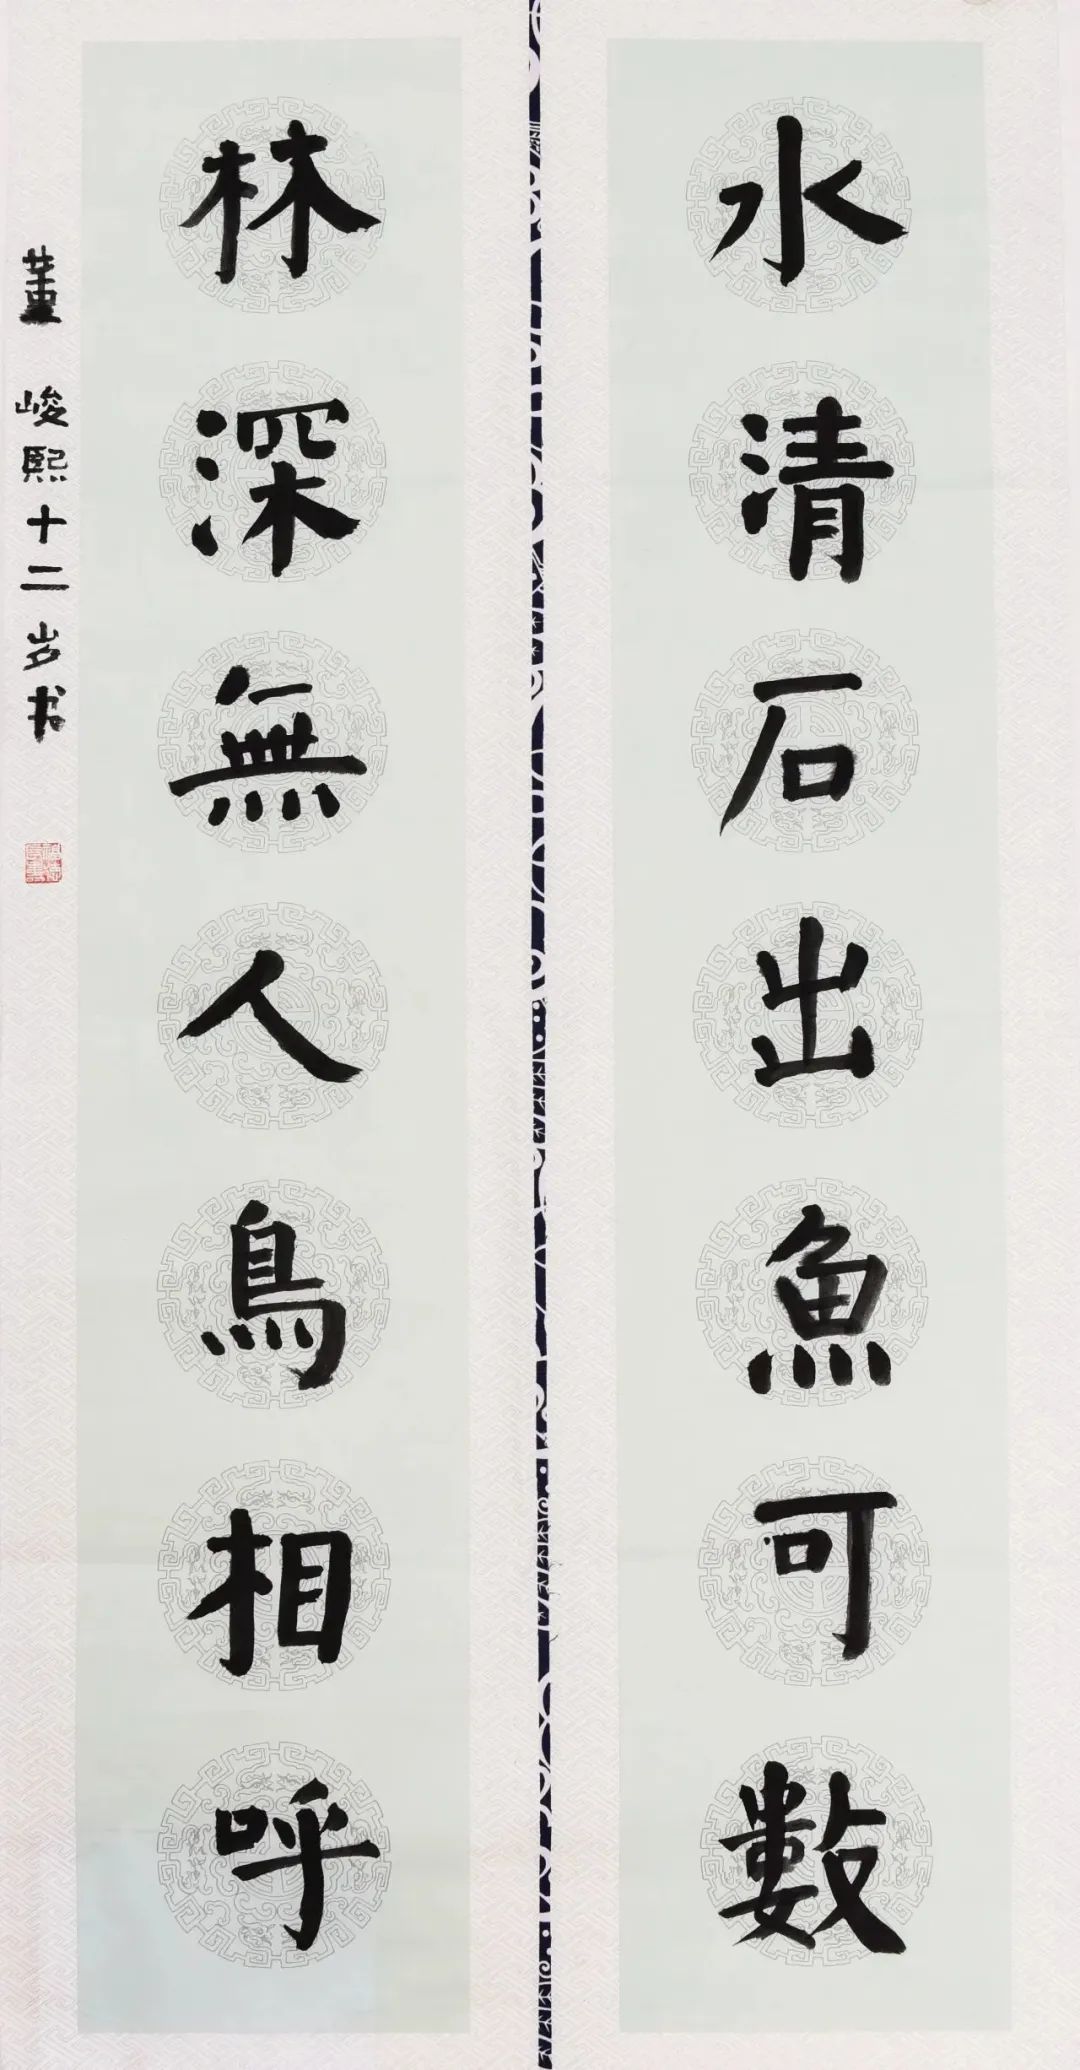 水清石出魚可數
林深無人鳥相呼
董峻熙十二岁书